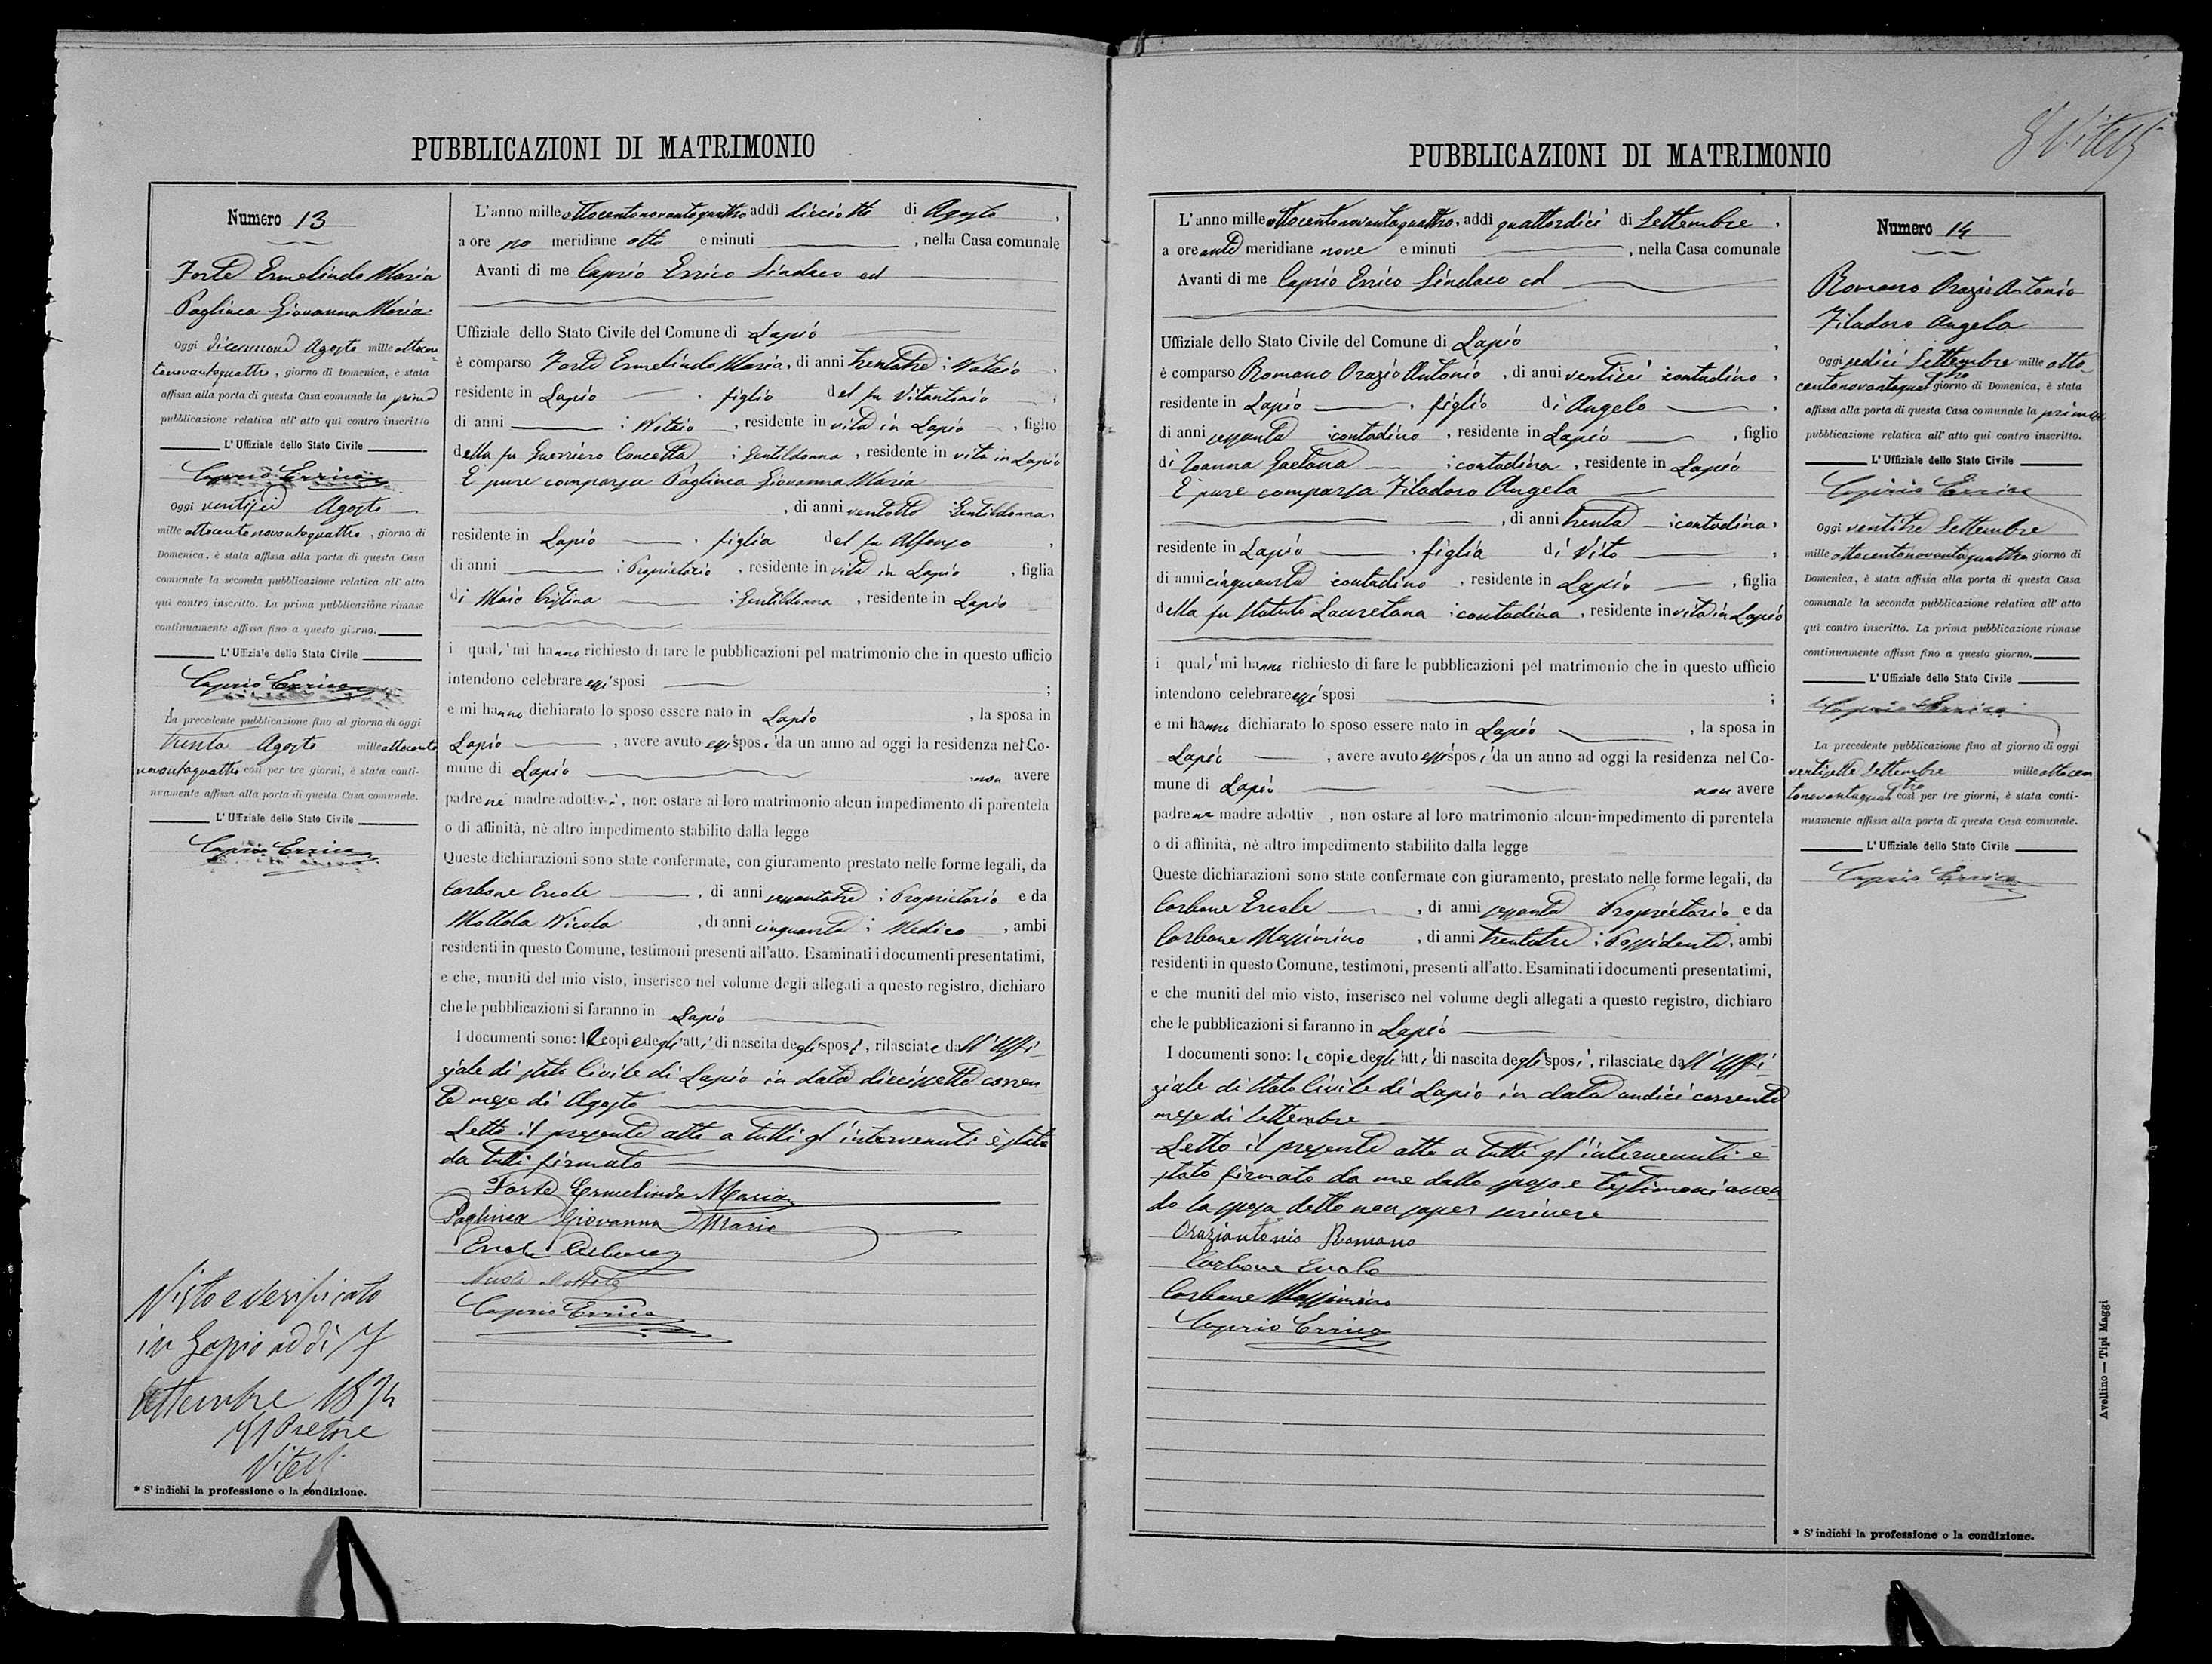 PUBBLICAZIONI DI MATRIMONIO
Numero 13
Forte Ermelindo Maria
Paglinca Giovanna Maria
Oggi diecinnove Agosto mille ottocen-
tonovantaquattro, giorno di Domenica, è stata
affissa alla porta di questa Casa comunale la prima
pubblicazione relativa all' atto qui contro inscritto
L' Uffiziale dello Stato Civile
Caprio Errico
Oggi ventisei Agosto
mille ottocentonovantaquattro, giorno di
Domenica, è stata affissa alla porta di questa Casa
comunale la seconda pubblicazione relativa all' atto
qui contro inscritto. La prima pubblicazione rimase
continuamente affissa fino a questo giorno.
L' Uffiziale dello Stato Civile
Caprio Errico
La precedente pubblicazione fino al giorno di oggi
trenta Agosto mille ottocento
novantaquattro così per tre giorni, è stata conti-
nuamente affissa alla porta di questa Casa comunale.
L' Uffiziale dello Stato Civile
Caprio Errico
Visto e verificato
in Lapio addì 17
Settembre 1894
Il Pretore
Vitelli
* S' indichi la professione o la condizione.
L' anno mille ottocentonovantaquattro addì dieciotto di Agosto,
a ore po meridiane otto e minuti , nella Casa comunale
Avanti di me Caprio Errico Sindaco ed
Uffiziale dello Stato Civile del Comune di Lapio
è comparso Forte Ermelindo Maria, di anni trentatre : Notaio,
residente in Lapio , figlio del fu Vitantonio ,
di anni : Notaio , residente in vita in Lapio , figlio
della fu Guerriero Concetta : Gentildonna , residente in vita in Lapio
È pure comparsa Paglinca Giovanna Maria
, di anni ventotto Gentildonna,
residente in Lapio , figlia del fu Alfonso ,
di anni : Proprietario , residente in vita in Lapio , figlia
di Maio Cristina : Gentildonna , residente in Lapio
i quali mi hanno richiesto di fare le pubblicazioni pel matrimonio che in questo ufficio
intendono celebrare essi sposi ;
e mi hanno dichiarato lo sposo essere nato in Lapio , la sposa in
Lapio , avere avuto essi sposi da un anno ad oggi la residenza nel Co-
mune di Lapio non avere
padre nè madre adottivi, non ostare al loro matrimonio alcun impedimento di parentela
o di affinità, nè altro impedimento stabilito dalla legge
Queste dichiarazioni sono state confermate, con giuramento prestato nelle forme legali, da
Carbone Ercole , di anni sessantatre : Proprietario e da
Mottola Nicola , di anni cinquanta : Medico , ambi
residenti in questo Comune, testimoni presenti all'atto. Esaminati i documenti presentatimi,
e che, muniti del mio visto, inserisco nel volume degli allegati a questo registro, dichiaro
che le pubblicazioni si faranno in Lapio
I documenti sono: le copie degli atti di nascita degli sposi, rilasciate dall' Uffi-
ziale di stato Civile di Lapio in data diecissette corren
te mese di Agosto
Letto il presente atto a tutti gl' intervenuti è stato
da tutti firmato
Forte Ermelindo Maria
Paglinca Giovanna Maria
Ercole Carbone
Nicola Mottola
Caprio Errico
PUBBLICAZIONI DI MATRIMONIO
Vitelli
L' anno mille ottocentonovantaquattro, addì quattordici di Settembre,
a ore anti meridiane nove e minuti , nella Casa comunale
Avanti di me Caprio Errico Sindaco ed
Uffiziale dello Stato Civile del Comune di Lapio ,
è comparso Romano Orazio Antonio , di anni ventisei contadino,
residente in Lapio , figlio di Angelo ,
di anni sessanta contadino , residente in Lapio , figlio
di Joanna Gaetana : contadina , residente in Lapio
È pure comparsa Filadoro Angela
, di anni trenta : contadina,
residente in Lapio , figlia di Vito ,
di anni cinquanta contadino , residente in Lapio , figlia
della fu Statuto Lauretana : contadina , residente in vita in Lapio
i quali mi hanno richiesto di fare le pubblicazioni pel matrimonio che in questo ufficio
intendono celebrare essi sposi ;
e mi hanno dichiarato lo sposo essere nato in Lapio , la sposa in
Lapio , avere avuto essi sposi da un anno ad oggi la residenza nel Co-
mune di Lapio non avere
padre ne madre adottiv , non ostare al loro matrimonio alcun impedimento di parentela
o di affinità, nè altro impedimento stabilito dalla legge
Queste dichiarazioni sono state confermate con giuramento, prestato nelle forme legali, da
Carbone Ercole , di anni sessanta Proprietario e da
Carbone Massimino , di anni trentatre : Possidente, ambi
residenti in questo Comune, testimoni, presenti all'atto. Esaminati i documenti presentatimi,
e che muniti del mio visto, inserisco nel volume degli allegati a questo registro, dichiaro
che le pubblicazioni si faranno in Lapio
I documenti sono: le copie degli atti di nascita degli sposi, rilasciate dall' Uffi-
ziale di Stato Civile di Lapio in data undici corrente
mese di Settembre
Letto il presente atto a tutti gl' intervenuti è
stato firmato da me dallo sposo e testimoni aven
do la sposa detto non saper scrivere
Oraziantonio Romano
Carbone Ercole
Carbone Massimino
Caprio Errico
Numero 14
Romano Orazio Antonio
Filadoro Angela
Oggi sedici Settembre mille otto
centonovantaquattro giorno di Domenica, è stata
affissa alla porta di questa Casa comunale la prima
pubblicazione relativa all' atto qui contro inscritto.
L' Uffiziale dello Stato Civile
Caprio Errico
Oggi ventitre Settembre
mille ottocentonovantaquattro giorno di
Domenica, è stata affissa alla porta di questa Casa
comunale la seconda pubblicazione relativa all' atto
qui contro inscritto. La prima pubblicazione rimase
continuamente affissa fino a questo giorno.
L' Uffiziale dello Stato Civile
Caprio Errico
La precedente pubblicazione fino al giorno di oggi
ventisette Settembre mille ottocen
tonovantaquattro così per tre giorni, è stata conti-
nuamente affissa alla porta di questa Casa comunale.
L' Uffiziale dello Stato Civile
Caprio Errico
* S' indichi la professione o la condizione.
Avellino — Tipi Maggi